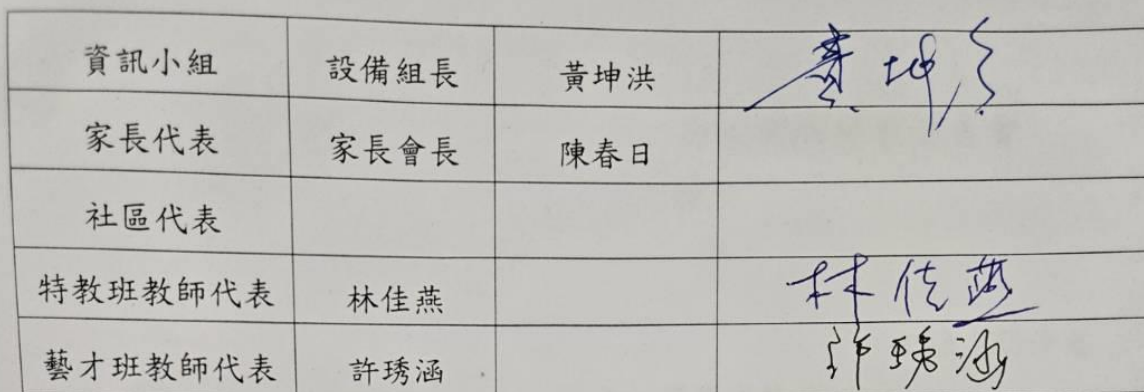 資訊小組 設備組長 黃坤洪 黃坤洪
家長代表 家長會長 陳春日
社區代表
特教班教師代表 林佳燕 林佳燕
藝才班教師代表 許琇涵 許琇涵